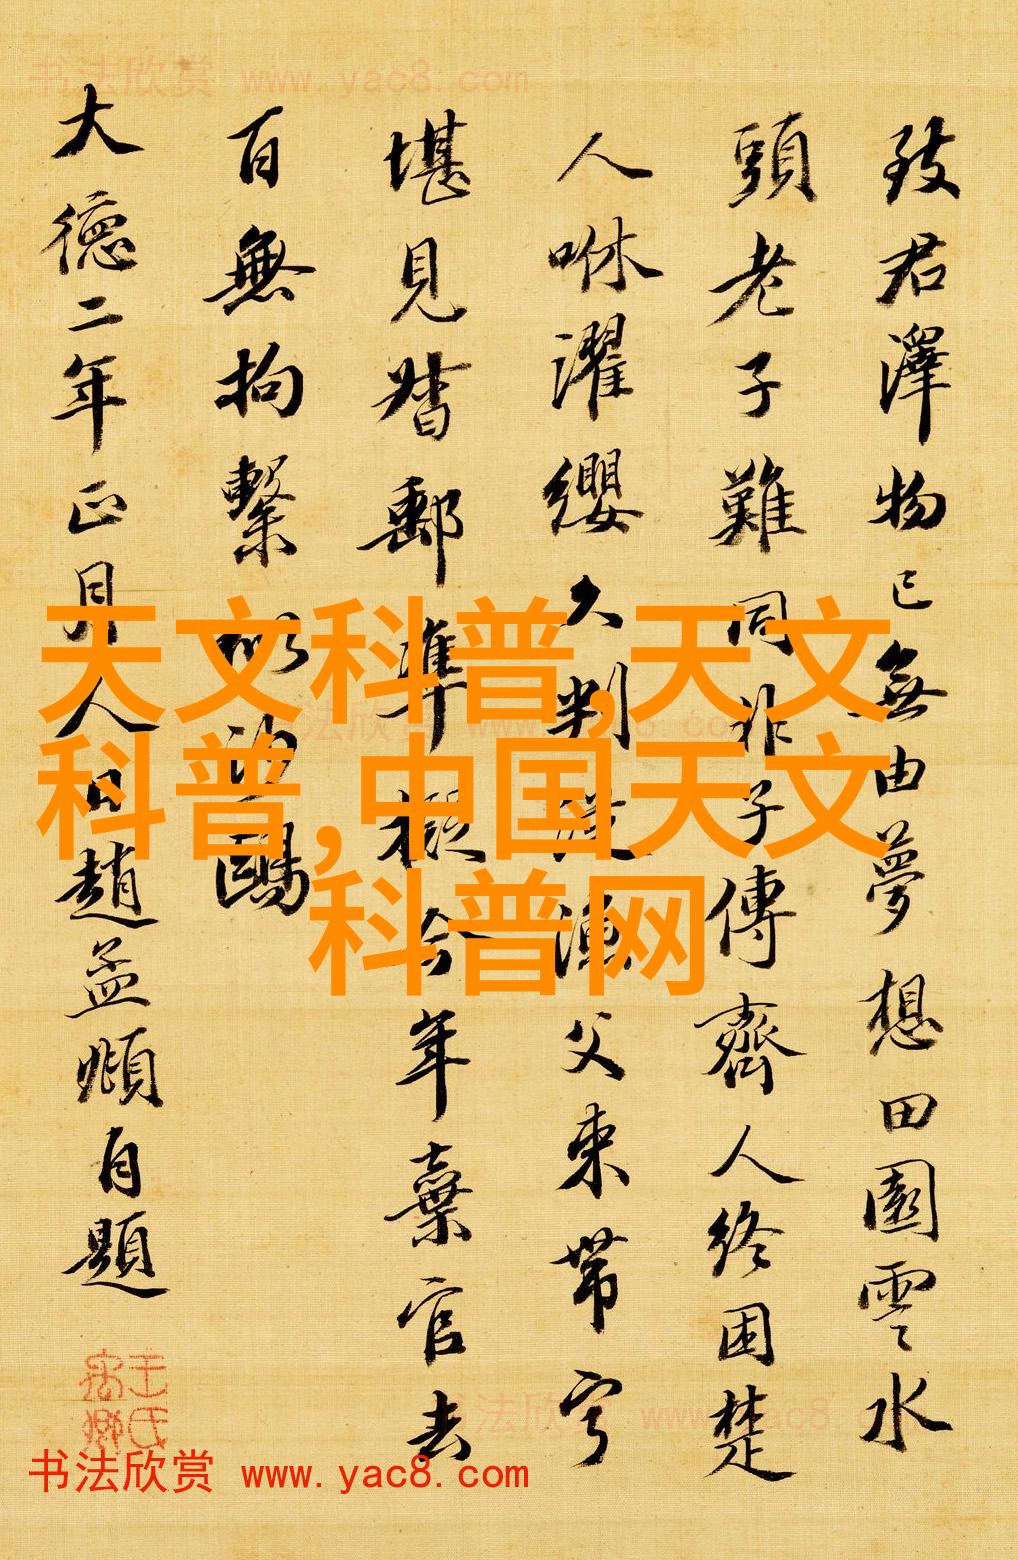 书法欣赏 www.yac8.com
致君澤物已無由夢想田園雲水
頭老子難同非子傳齊人終困楚
人咻濯纓久判從漁父束帶寧
堪見督郵準擬今年棄官去
百無拘繫似沙鷗
大德二年正月人日趙孟頫自題
王氏禹卿
天文科普,天文
科普,中国天文
科普网
书法欣赏 www.yac8.com